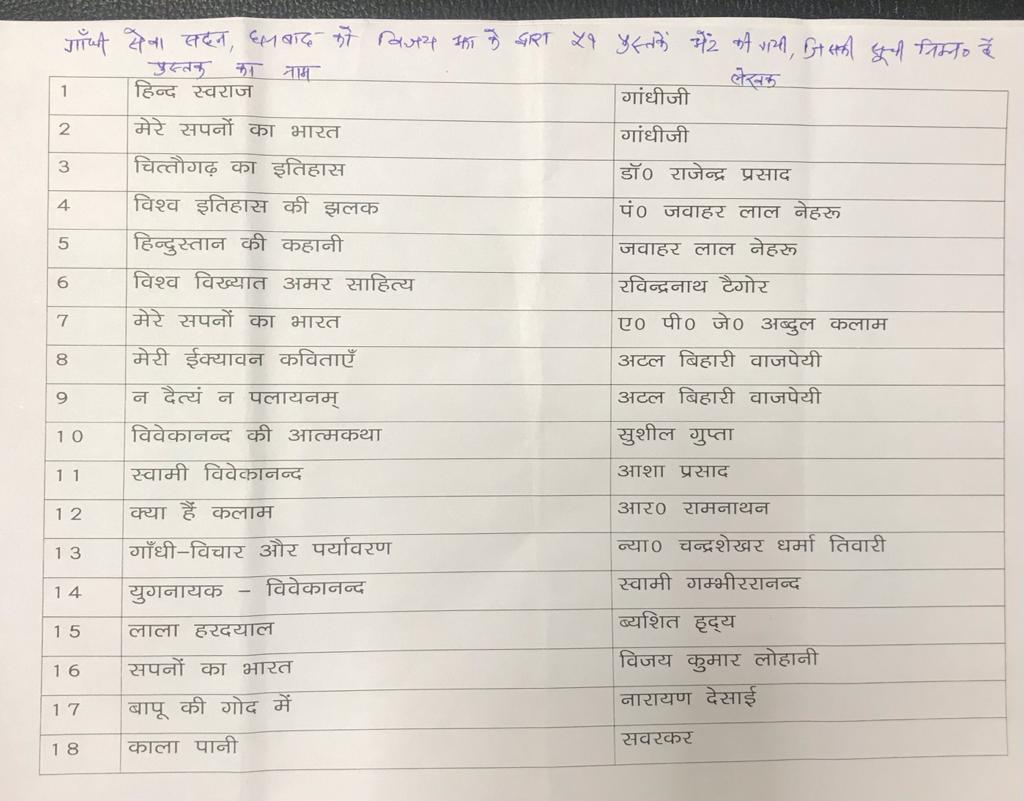 गाँधी सेवा सदन, धनबाद को विजय झा के द्वारा ५१ पुस्तकें भेंट की गयी, जिसकी सूची निम्न० हैं
पुस्तक का नाम लेखक
1 हिन्द स्वराज गांधीजी
2 मेरे सपनों का भारत गांधीजी
3 चित्तौगढ़ का इतिहास डॉ0 राजेन्द्र प्रसाद
4 विश्व इतिहास की झलक पं0 जवाहर लाल नेहरू
5 हिन्दुस्तान की कहानी जवाहर लाल नेहरू
6 विश्व विख्यात अमर साहित्य रविन्द्रनाथ टैगोर
7 मेरे सपनों का भारत ए0 पी0 जे0 अब्दुल कलाम
8 मेरी ईक्यावन कविताएँ अटल बिहारी वाजपेयी
9 न दैत्यं न पलायनम् अटल बिहारी वाजपेयी
10 विवेकानन्द की आत्मकथा सुशील गुप्ता
11 स्वामी विवेकानन्द आशा प्रसाद
12 क्या हैं कलाम आर0 रामनाथन
13 गाँधी-विचार और पर्यावरण न्या0 चन्द्रशेखर धर्मा तिवारी
14 युगनायक - विवेकानन्द स्वामी गम्भीररानन्द
15 लाला हरदयाल ब्यशित हृद्य
16 सपनों का भारत विजय कुमार लोहानी
17 बापू की गोद में नारायण देसाई
18 काला पानी सवरकर